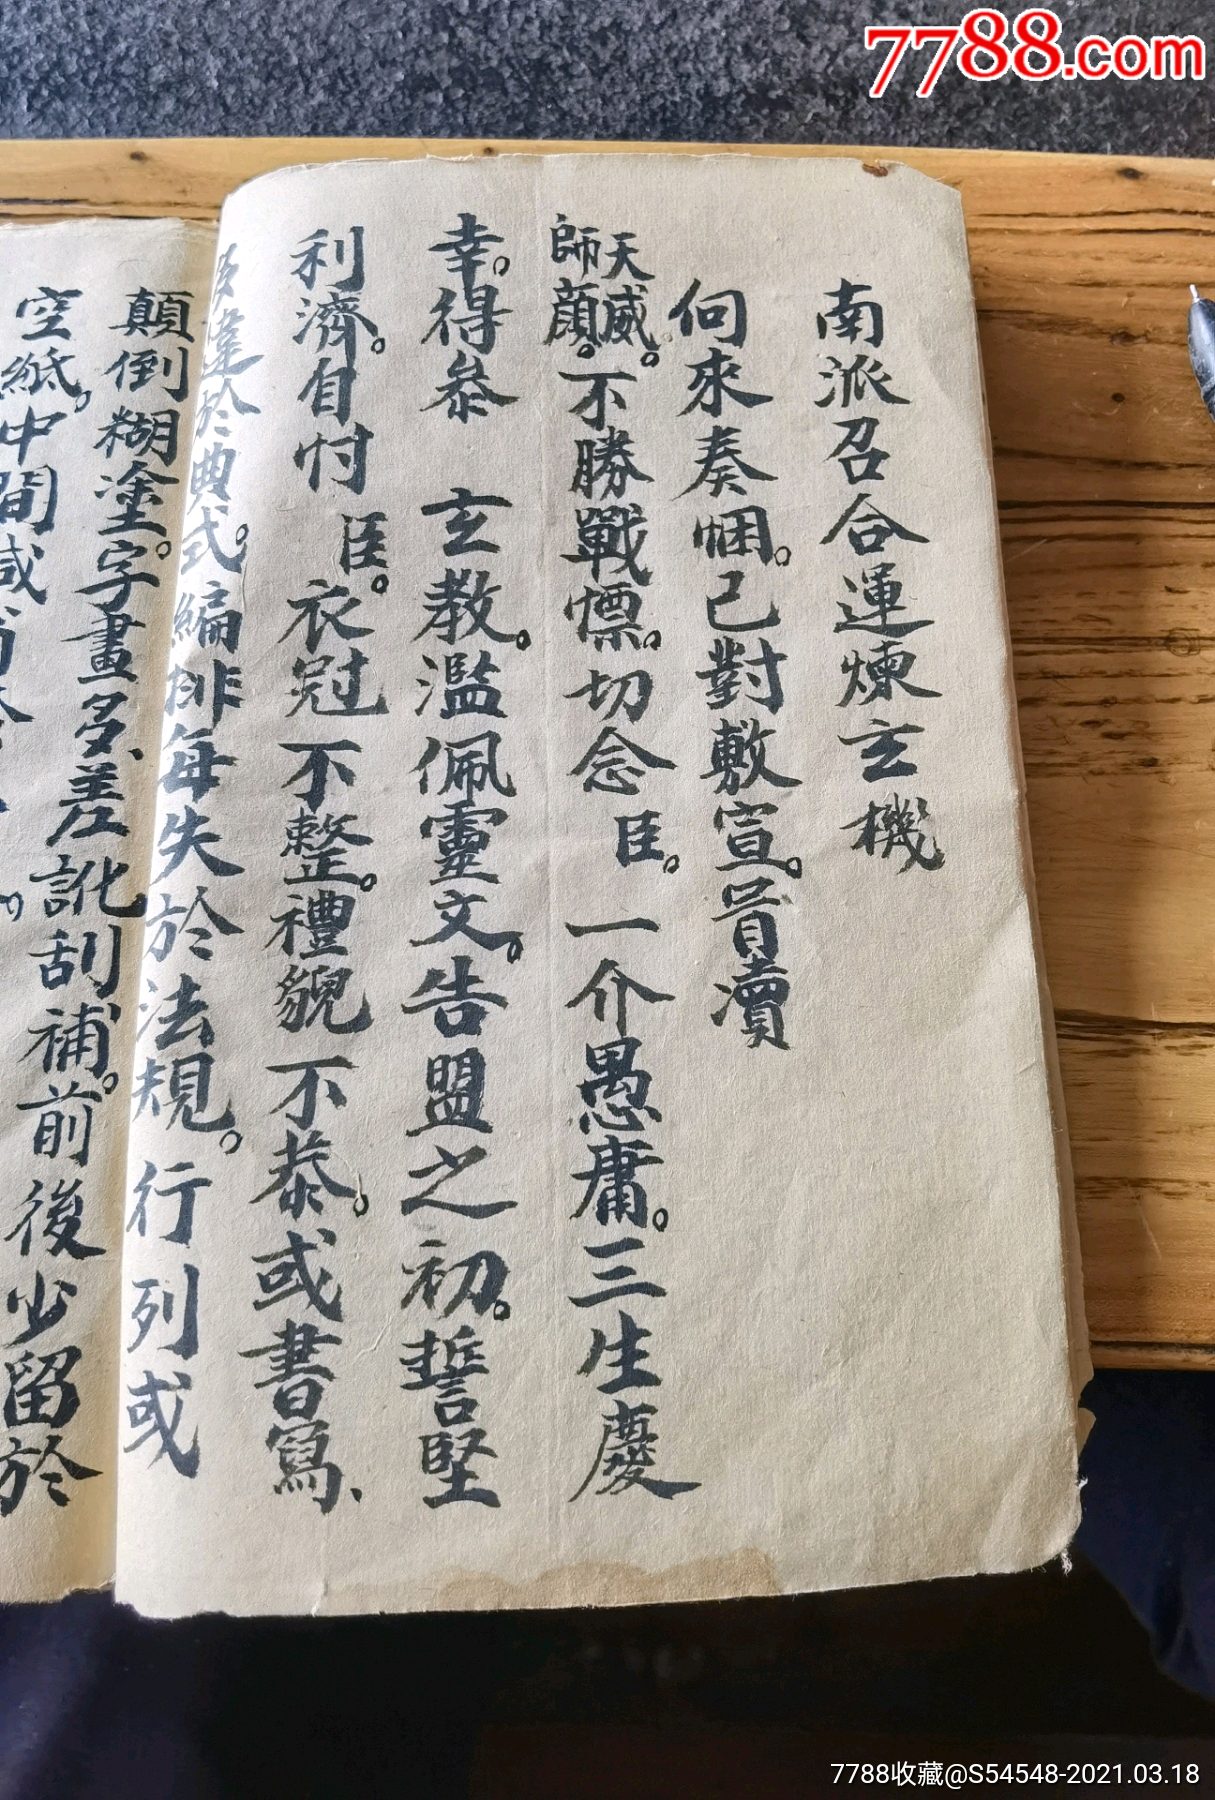 7788.com
南派召合運煉玄機
向來奏悃。已對敷宣。首瀆
天威。
師顔。不勝戰慓。切念臣。一介愚庸。三生慶
幸。得叅 玄教。濫佩靈文。告盟之初。誓堅
利濟。自忖臣。衣冠不整。禮貌不恭。或書寫、
違於典式。編排每失於法規。行列或
顛倒糊塗。字畫多、差訛刮補。前後少留於
空紙。中間
7788收藏@S54548-2021.03.18